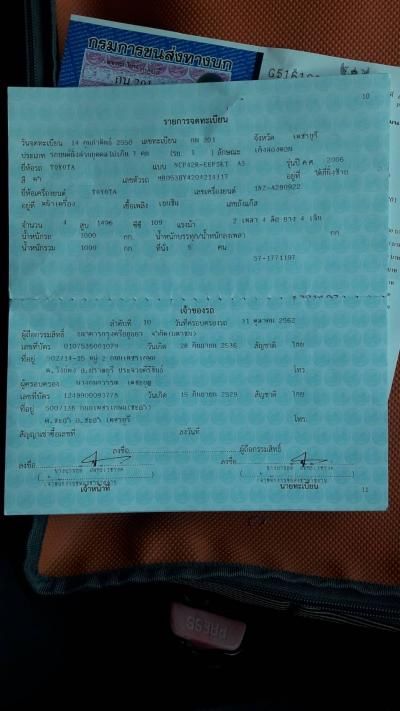 กรมการขนส่งทางบก
10
รายการจดทะเบียน
วันจดทะเบียน 14 กุมภาพันธ์ 2550 เลขทะเบียน กน 201 จังหวัด เพชรบุรี
ประเภท รถยนต์นั่งส่วนบุคคลไม่เกิน 7 คน (รย. 1 ) ลักษณะ เก๋งสองตอน
ยี่ห้อรถ TOYOTA แบบ NCP42R-EEPSKT A3 รุ่นปี ค.ศ. 2006
สี ดำ เลขตัวรถ อยู่ที่
ยี่ห้อเครื่องยนต์ TOYOTA เลขเครื่องยนต์
อยู่ที่ หน้าเครื่อง เชื้อเพลิง เบนซิน เลขถังแก๊ส
จำนวน 4 สูบ 1496 ซีซี 109 แรงม้า 2 เพลา 4 ล้อ ยาง 4 เส้น
น้ำหนักรถ 1000 กก. น้ำหนักบรรทุก/น้ำหนักลงเพลา กก.
น้ำหนักรวม 1000 กก. ที่นั่ง คน
57-1771197
เจ้าของรถ
ลำดับที่ 10 วันที่ครอบครองรถ 31 ตุลาคม 2562
ผู้ถือกรรมสิทธิ์ ธนาคารกรุงศรีอยุธยา จำกัด(มหาชน)
เลขที่บัตร 0107536001079 วันเกิด 28 กันยายน 2536 สัญชาติ ไทย
ที่อยู่ 902/14-15 หมู่ 2 ถนนเพชรเกษม
ต.วังก์พง อ.ปราณบุรี ประจวบคีรีขันธ์ โทร.
ผู้ครอบครอง
เลขที่บัตร วันเกิด 15 กันยายน 2529 สัญชาติ ไทย
ที่อยู่ 500/136 ถนนเพชรเกษม(ชะอำ)
ต.ชะอำ อ.ชะอำ เพชรบุรี โทร.
สัญญาเช่าซื้อเลขที่ ลงวันที่
ลงชื่อ ผู้ถือกรรมสิทธิ์
ลงชื่อ ลงชื่อ
เจ้าหน้าที่ นายทะเบียน
11
PRESS